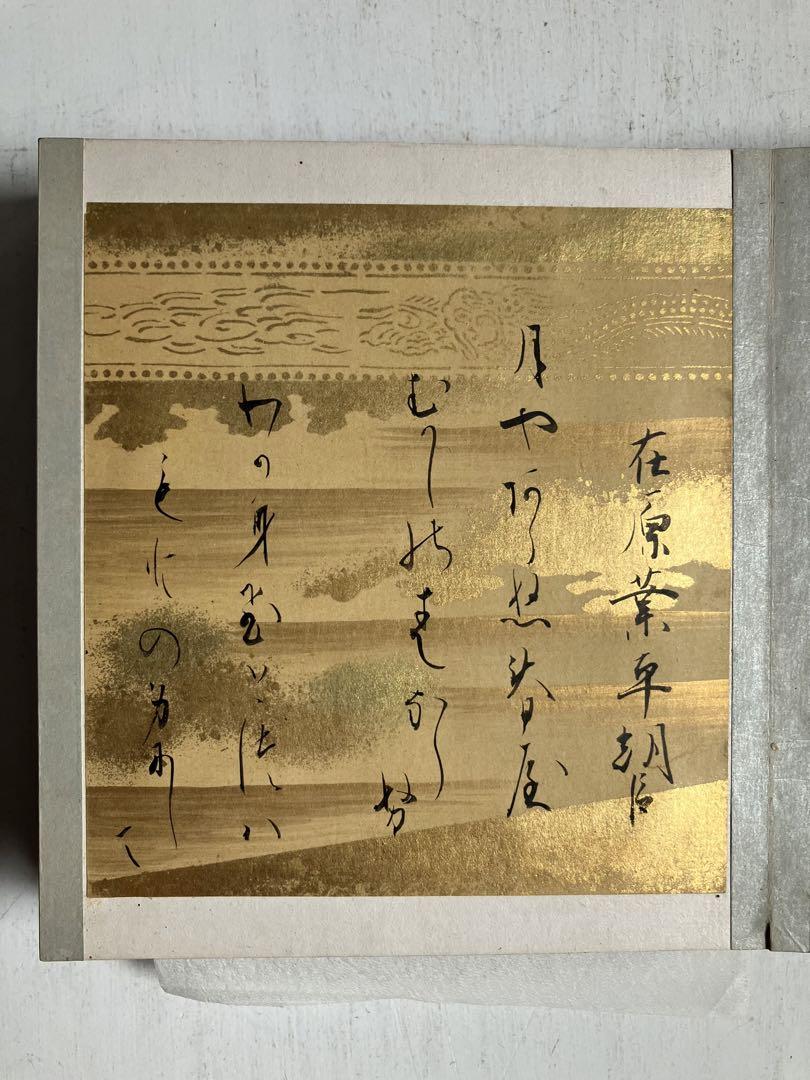 在原業平朝臣
月やあらぬ春や
むかしのはるなら
ぬ
わか身ひとつは
もとの身にし
て